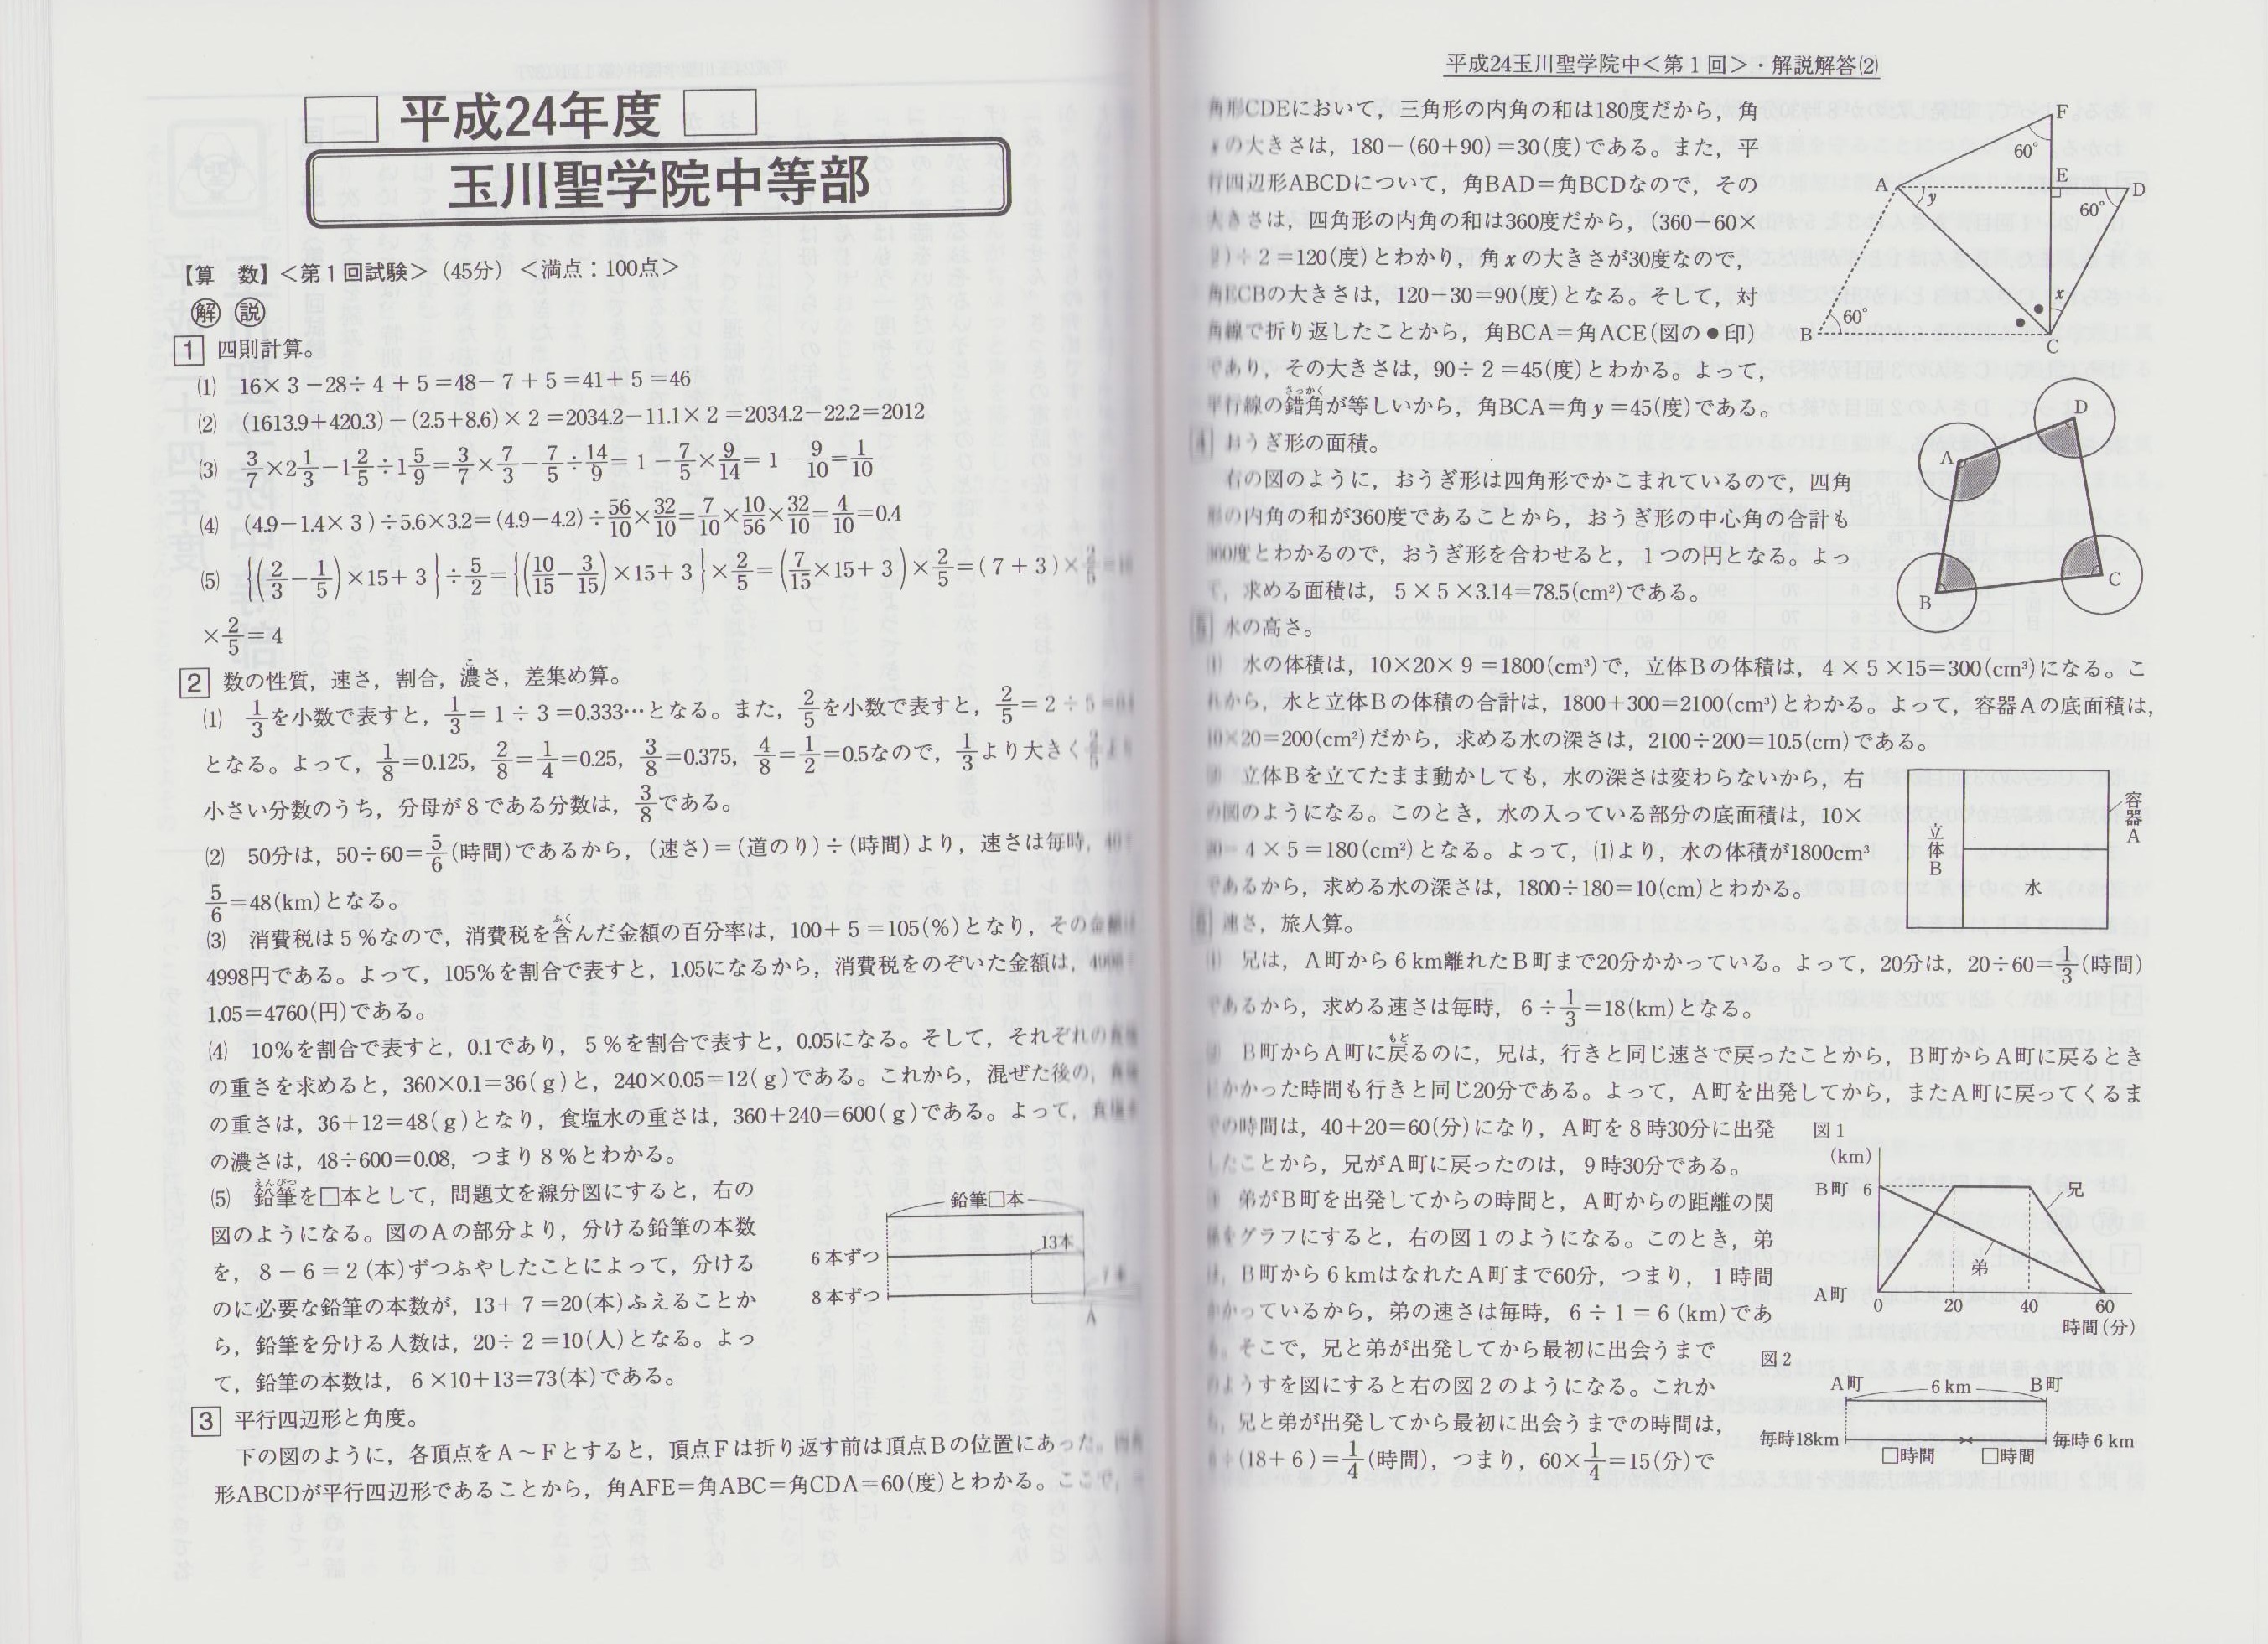 平成24年度
玉川聖学院中等部
【算　数】＜第１回試験＞（45分）＜満点：100点＞
解説
1 四則計算。
(1) 16×3－28÷4＋5＝48－7＋5＝41＋5＝46
(2) (1613.9＋420.3)－(2.5＋8.6)×2＝2034.2－11.1×2＝2034.2－22.2＝2012
(3) 3/7×2 1/3－1 2/5÷1 5/9＝3/7×7/3－7/5÷14/9＝1－7/5×9/14＝1－9/10＝1/10
(4) (4.9－1.4×3)÷5.6×3.2＝(4.9－4.2)÷56/10×32/10＝7/10×10/56×32/10＝4/10＝0.4
(5) {(2/3－1/5)×15＋3}÷5/2＝{(10/15－3/15)×15＋3}×2/5＝(7/15×15＋3)×2/5＝(7＋3)×2/5
×2/5＝4
2 数の性質，速さ，割合，濃さ，差集め算。
(1) 1/3を小数で表すと，1/3＝1÷3＝0.333…となる。また，2/5を小数で表すと，2/5＝2÷5
となる。よって，1/8＝0.125，2/8＝1/4＝0.25，3/8＝0.375，4/8＝1/2＝0.5なので，1/3より大きく
小さい分数のうち，分母が8である分数は，3/8である。
(2) 50分は，50÷60＝5/6(時間)であるから，(速さ)＝(道のり)÷(時間)より，速さは毎時，
5/6＝48(km)となる。
(3) 消費税は5％なので，消費税を含んだ金額の百分率は，100＋5＝105(％)となり，その
4998円である。よって，105％を割合で表すと，1.05になるから，消費税をのぞいた金額は，
1.05＝4760(円)である。
(4) 10％を割合で表すと，0.1であり，5％を割合で表すと，0.05になる。そして，それぞれの
の重さを求めると，360×0.1＝36(g)と，240×0.05＝12(g)である。これから，混ぜた後の，
の重さは，36＋12＝48(g)となり，食塩水の重さは，360＋240＝600(g)である。よって，
の濃さは，48÷600＝0.08，つまり8％とわかる。
(5) 鉛筆を□本として，問題文を線分図にすると，右の
図のようになる。図のAの部分より，分ける鉛筆の本数
を，8－6＝2(本)ずつふやしたことによって，分ける
のに必要な鉛筆の本数が，13＋7＝20(本)ふえることか
ら，鉛筆を分ける人数は，20÷2＝10(人)となる。よっ
て，鉛筆の本数は，6×10＋13＝73(本)である。
鉛筆□本
13本
6本ずつ
8本ずつ
A
3 平行四辺形と角度。
下の図のように，各頂点をA～Fとすると，頂点Fは折り返す前は頂点Bの位置にあった。
形ABCDが平行四辺形であることから，角AFE＝角ABC＝角CDA＝60(度)とわかる。ここで，
平成24玉川聖学院中＜第１回＞・解説解答(2)
角形CDEにおいて，三角形の内角の和は180度だから，角
の大きさは，180－(60＋90)＝30(度)である。また，平
行四辺形ABCDについて，角BAD＝角BCDなので，その
大きさは，四角形の内角の和は360度だから，(360－60×
2)÷2＝120(度)とわかり，角xの大きさが30度なので，
角ECBの大きさは，120－30＝90(度)となる。そして，対
角線で折り返したことから，角BCA＝角ACE(図の●印)
であり，その大きさは，90÷2＝45(度)とわかる。よって，
平行線の錯角が等しいから，角BCA＝角y＝45(度)である。
F
60°
A
y
E
D
60°
x
B
60°
C
4 おうぎ形の面積。
右の図のように，おうぎ形は四角形でかこまれているので，四角
形の内角の和が360度であることから，おうぎ形の中心角の合計も
360度とわかるので，おうぎ形を合わせると，1つの円となる。よっ
て，求める面積は，5×5×3.14＝78.5(cm²)である。
A
D
B
C
5 水の高さ。
(1) 水の体積は，10×20×9＝1800(cm³)で，立体Bの体積は，4×5×15＝300(cm³)になる。こ
れから，水と立体Bの体積の合計は，1800＋300＝2100(cm³)とわかる。よって，容器Aの底面積は，
10×20＝200(cm²)だから，求める水の深さは，2100÷200＝10.5(cm)である。
立体Bを立てたまま動かしても，水の深さは変わらないから，右
の図のようになる。このとき，水の入っている部分の底面積は，10×
20－4×5＝180(cm²)となる。よって，(1)より，水の体積が1800cm³
であるから，求める水の深さは，1800÷180＝10(cm)とわかる。
立体B
容器A
水
6 速さ，旅人算。
(1) 兄は，A町から6km離れたB町まで20分かかっている。よって，20分は，20÷60＝1/3(時間)
であるから，求める速さは毎時，6÷1/3＝18(km)となる。
B町からA町に戻るのに，兄は，行きと同じ速さで戻ったことから，B町からA町に戻るとき
にかかった時間も行きと同じ20分である。よって，A町を出発してから，またA町に戻ってくるま
での時間は，40＋20＝60(分)になり，A町を8時30分に出発
したことから，兄がA町に戻ったのは，9時30分である。
弟がB町を出発してからの時間と，A町からの距離の関
係をグラフにすると，右の図1のようになる。このとき，弟
は，B町から6kmはなれたA町まで60分，つまり，1時間
かかっているから，弟の速さは毎時，6÷1＝6(km)であ
る。そこで，兄と弟が出発してから最初に出会うまで
のようすを図にすると右の図2のようになる。これか
ら，兄と弟が出発してから最初に出会うまでの時間は，
÷(18＋6)＝1/4(時間)，つまり，60×1/4＝15(分)で
図1
(km)
B町 6
兄
弟
A町
0 20 40 60
時間(分)
図2
A町 6km B町
毎時18km
毎時6km
□時間 □時間